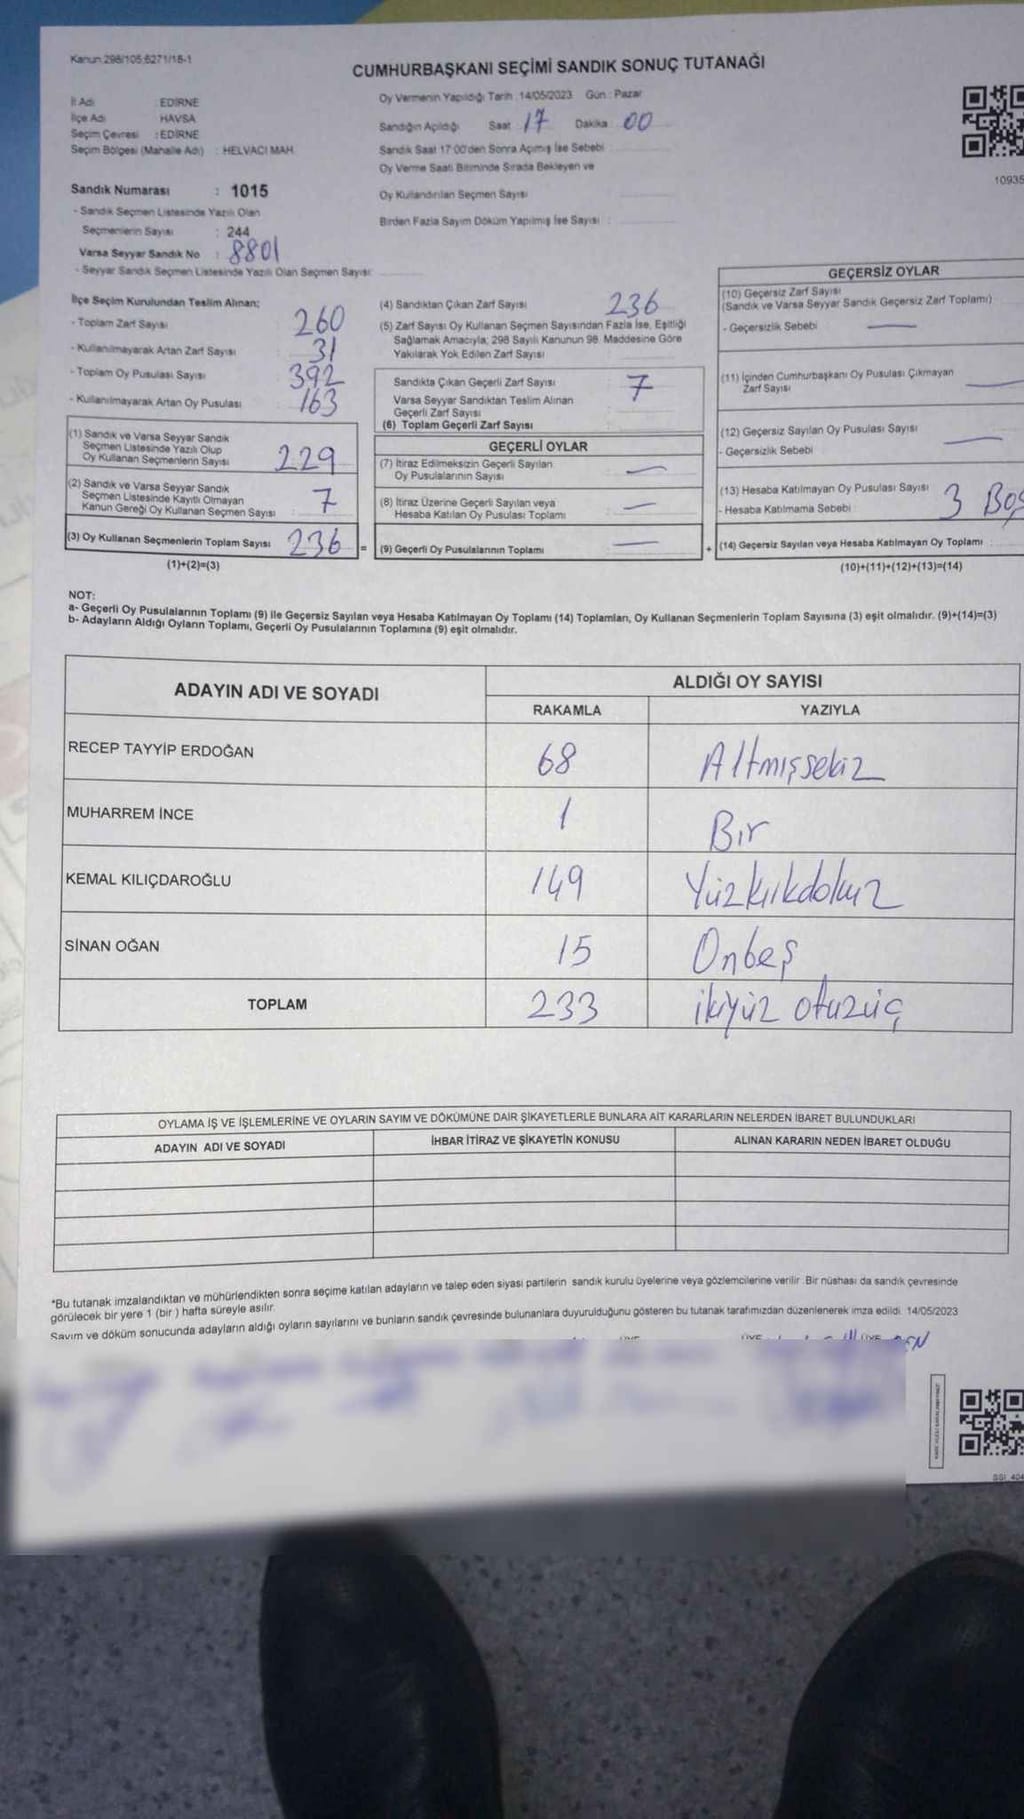 Kanun 298/105;6271/18-1
CUMHURBAŞKANI SEÇİMİ SANDIK SONUÇ TUTANAĞI
İl Adı : EDİRNE
İlçe Adı : HAVSA
Seçim Çevresi : EDİRNE
Seçim Bölgesi (Mahalle Adı) : HELVACI MAH.
Oy Vermenin Yapıldığı Tarih : 14/05/2023 Gün : Pazar
Sandığın Açıldığı Saat 17 Dakika 00
Sandık Saat 17:00'den Sonra Açılmış İse Sebebi :
Oy Verme Saati Bitiminde Sırada Bekleyen ve
Oy Kullandırılan Seçmen Sayısı
Birden Fazla Sayım Döküm Yapılmış İse Sayısı :
10935
Sandık Numarası : 1015
- Sandık Seçmen Listesinde Yazılı Olan
Seçmenlerin Sayısı : 244
Varsa Seyyar Sandık No : 8801
- Seyyar Sandık Seçmen Listesinde Yazılı Olan Seçmen Sayısı:
İlçe Seçim Kurulundan Teslim Alınan;
- Toplam Zarf Sayısı 260
- Kullanılmayarak Artan Zarf Sayısı 31
- Toplam Oy Pusulası Sayısı 392
- Kullanılmayarak Artan Oy Pusulası 163
(1) Sandık ve Varsa Seyyar Sandık
Seçmen Listesinde Yazılı Olup
Oy Kullanan Seçmenlerin Sayısı 229
(2) Sandık ve Varsa Seyyar Sandık
Seçmen Listesinde Kayıtlı Olmayan
Kanun Gereği Oy Kullanan Seçmen Sayısı 7
(3) Oy Kullanan Seçmenlerin Toplam Sayısı 236 =
(1)+(2)=(3)
(4) Sandıktan Çıkan Zarf Sayısı 236
(5) Zarf Sayısı Oy Kullanan Seçmen Sayısından Fazla İse, Eşitliği
Sağlamak Amacıyla; 298 Sayılı Kanunun 98. Maddesine Göre
Yakılarak Yok Edilen Zarf Sayısı
Sandıkta Çıkan Geçerli Zarf Sayısı 7
Varsa Seyyar Sandıktan Teslim Alınan
Geçerli Zarf Sayısı
(6) Toplam Geçerli Zarf Sayısı
GEÇERLİ OYLAR
(7) İtiraz Edilmeksizin Geçerli Sayılan
Oy Pusulalarının Sayısı —
(8) İtiraz Üzerine Geçerli Sayılan veya
Hesaba Katılan Oy Pusulası Toplamı —
(9) Geçerli Oy Pusulalarının Toplamı — +
GEÇERSİZ OYLAR
(10) Geçersiz Zarf Sayısı
(Sandık ve Varsa Seyyar Sandık Geçersiz Zarf Toplamı)
- Geçersizlik Sebebi —
(11) İçinden Cumhurbaşkanı Oy Pusulası Çıkmayan
Zarf Sayısı —
(12) Geçersiz Sayılan Oy Pusulası Sayısı —
- Geçersizlik Sebebi
(13) Hesaba Katılmayan Oy Pusulası Sayısı 3 Boş
- Hesaba Katılmama Sebebi
(14) Geçersiz Sayılan veya Hesaba Katılmayan Oy Toplamı
(10)+(11)+(12)+(13)=(14)
NOT:
a- Geçerli Oy Pusulalarının Toplamı (9) ile Geçersiz Sayılan veya Hesaba Katılmayan Oy Toplamı (14) Toplamları, Oy Kullanan Seçmenlerin Toplam Sayısına (3) eşit olmalıdır. (9)+(14)=(3)
b- Adayların Aldığı Oyların Toplamı, Geçerli Oy Pusulalarının Toplamına (9) eşit olmalıdır.
ADAYIN ADI VE SOYADI ALDIĞI OY SAYISI
RAKAMLA YAZIYLA
RECEP TAYYİP ERDOĞAN 68 Altmışsekiz
MUHARREM İNCE 1 Bir
KEMAL KILIÇDAROĞLU 149 Yüzkırkdokuz
SİNAN OĞAN 15 Onbeş
TOPLAM 233 ikiyüz otuzüç
OYLAMA İŞ VE İŞLEMLERİNE VE OYLARIN SAYIM VE DÖKÜMÜNE DAİR ŞİKAYETLERLE BUNLARA AİT KARARLARIN NELERDEN İBARET BULUNDUKLARI
ADAYIN ADI VE SOYADI İHBAR İTİRAZ VE ŞİKAYETİN KONUSU ALINAN KARARIN NEDEN İBARET OLDUĞU
*Bu tutanak imzalandıktan ve mühürlendikten sonra seçime katılan adayların ve talep eden siyasi partilerin sandık kurulu üyelerine veya gözlemcilerine verilir. Bir nüshası da sandık çevresinde
görülecek bir yere 1 (bir ) hafta süreyle asılır.
Sayım ve döküm sonucunda adayların aldığı oyların sayılarını ve bunların sandık çevresinde bulunanlara duyurulduğunu gösteren bu tutanak tarafımızdan düzenlenerek imza edildi. 14/05/2023